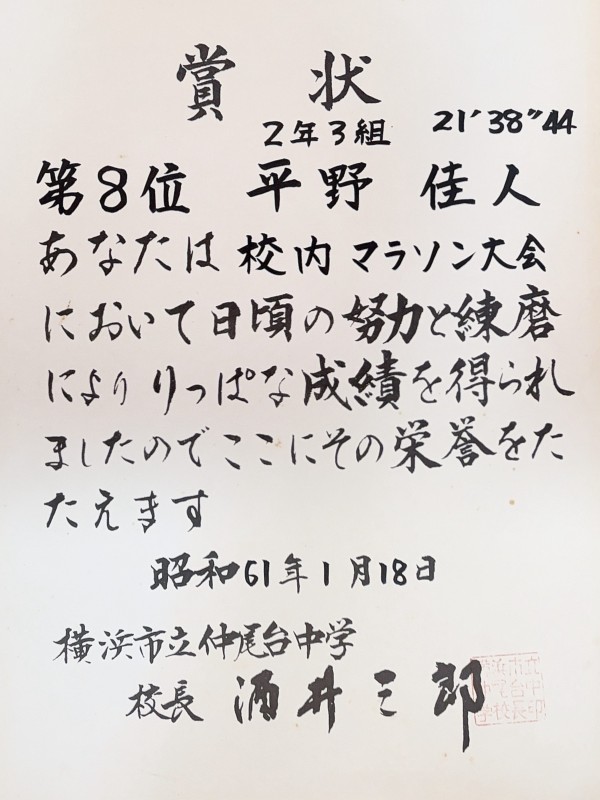 賞状
2年3組 21′38″44
第8位 平野 佳人
あなたは 校内 マラソン大会
において日頃の努力と練磨
により りっぱな成績を得られ
ましたのでここにその栄誉をた
たえます
昭和61年1月18日
横浜市立仲尾台中学
校長 酒井三郎